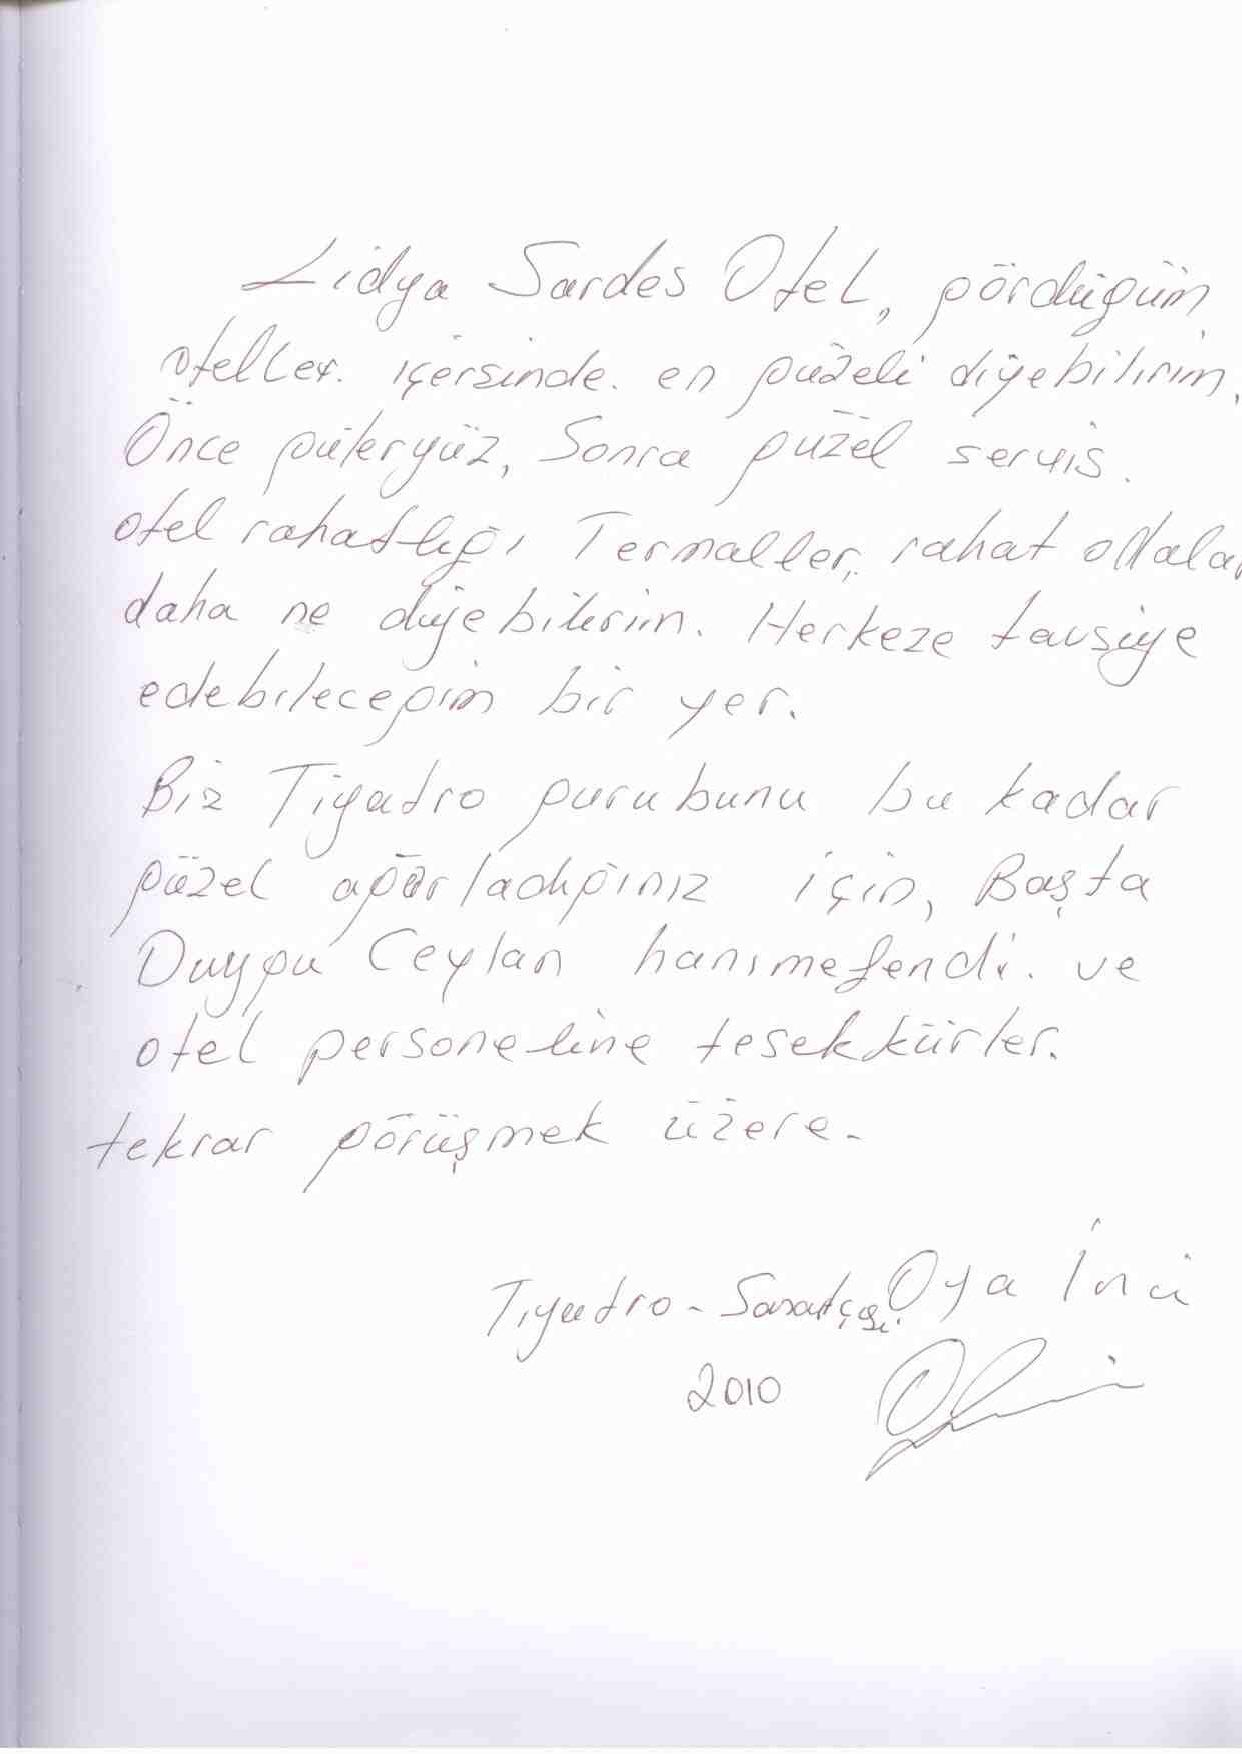 Lidya Sardes Otel, gördüğüm
oteller. içersinde. en güzeli diyebilirim.
Önce güleryüz, Sonra güzel servis.
otel rahatlığı Termaller, rahat odalar
daha ne diyebilirim. Herkeze tavsiye
edebileceğim bir yer.
Biz Tiyatro gurubunu bu kadar
güzel ağırladığınız için, Başta
Duygu Ceylan hanımefendi. ve
otel personeline teşekkürler.
tekrar görüşmek üzere.
Tiyatro - Sanatçısı. Oya İnci
2010